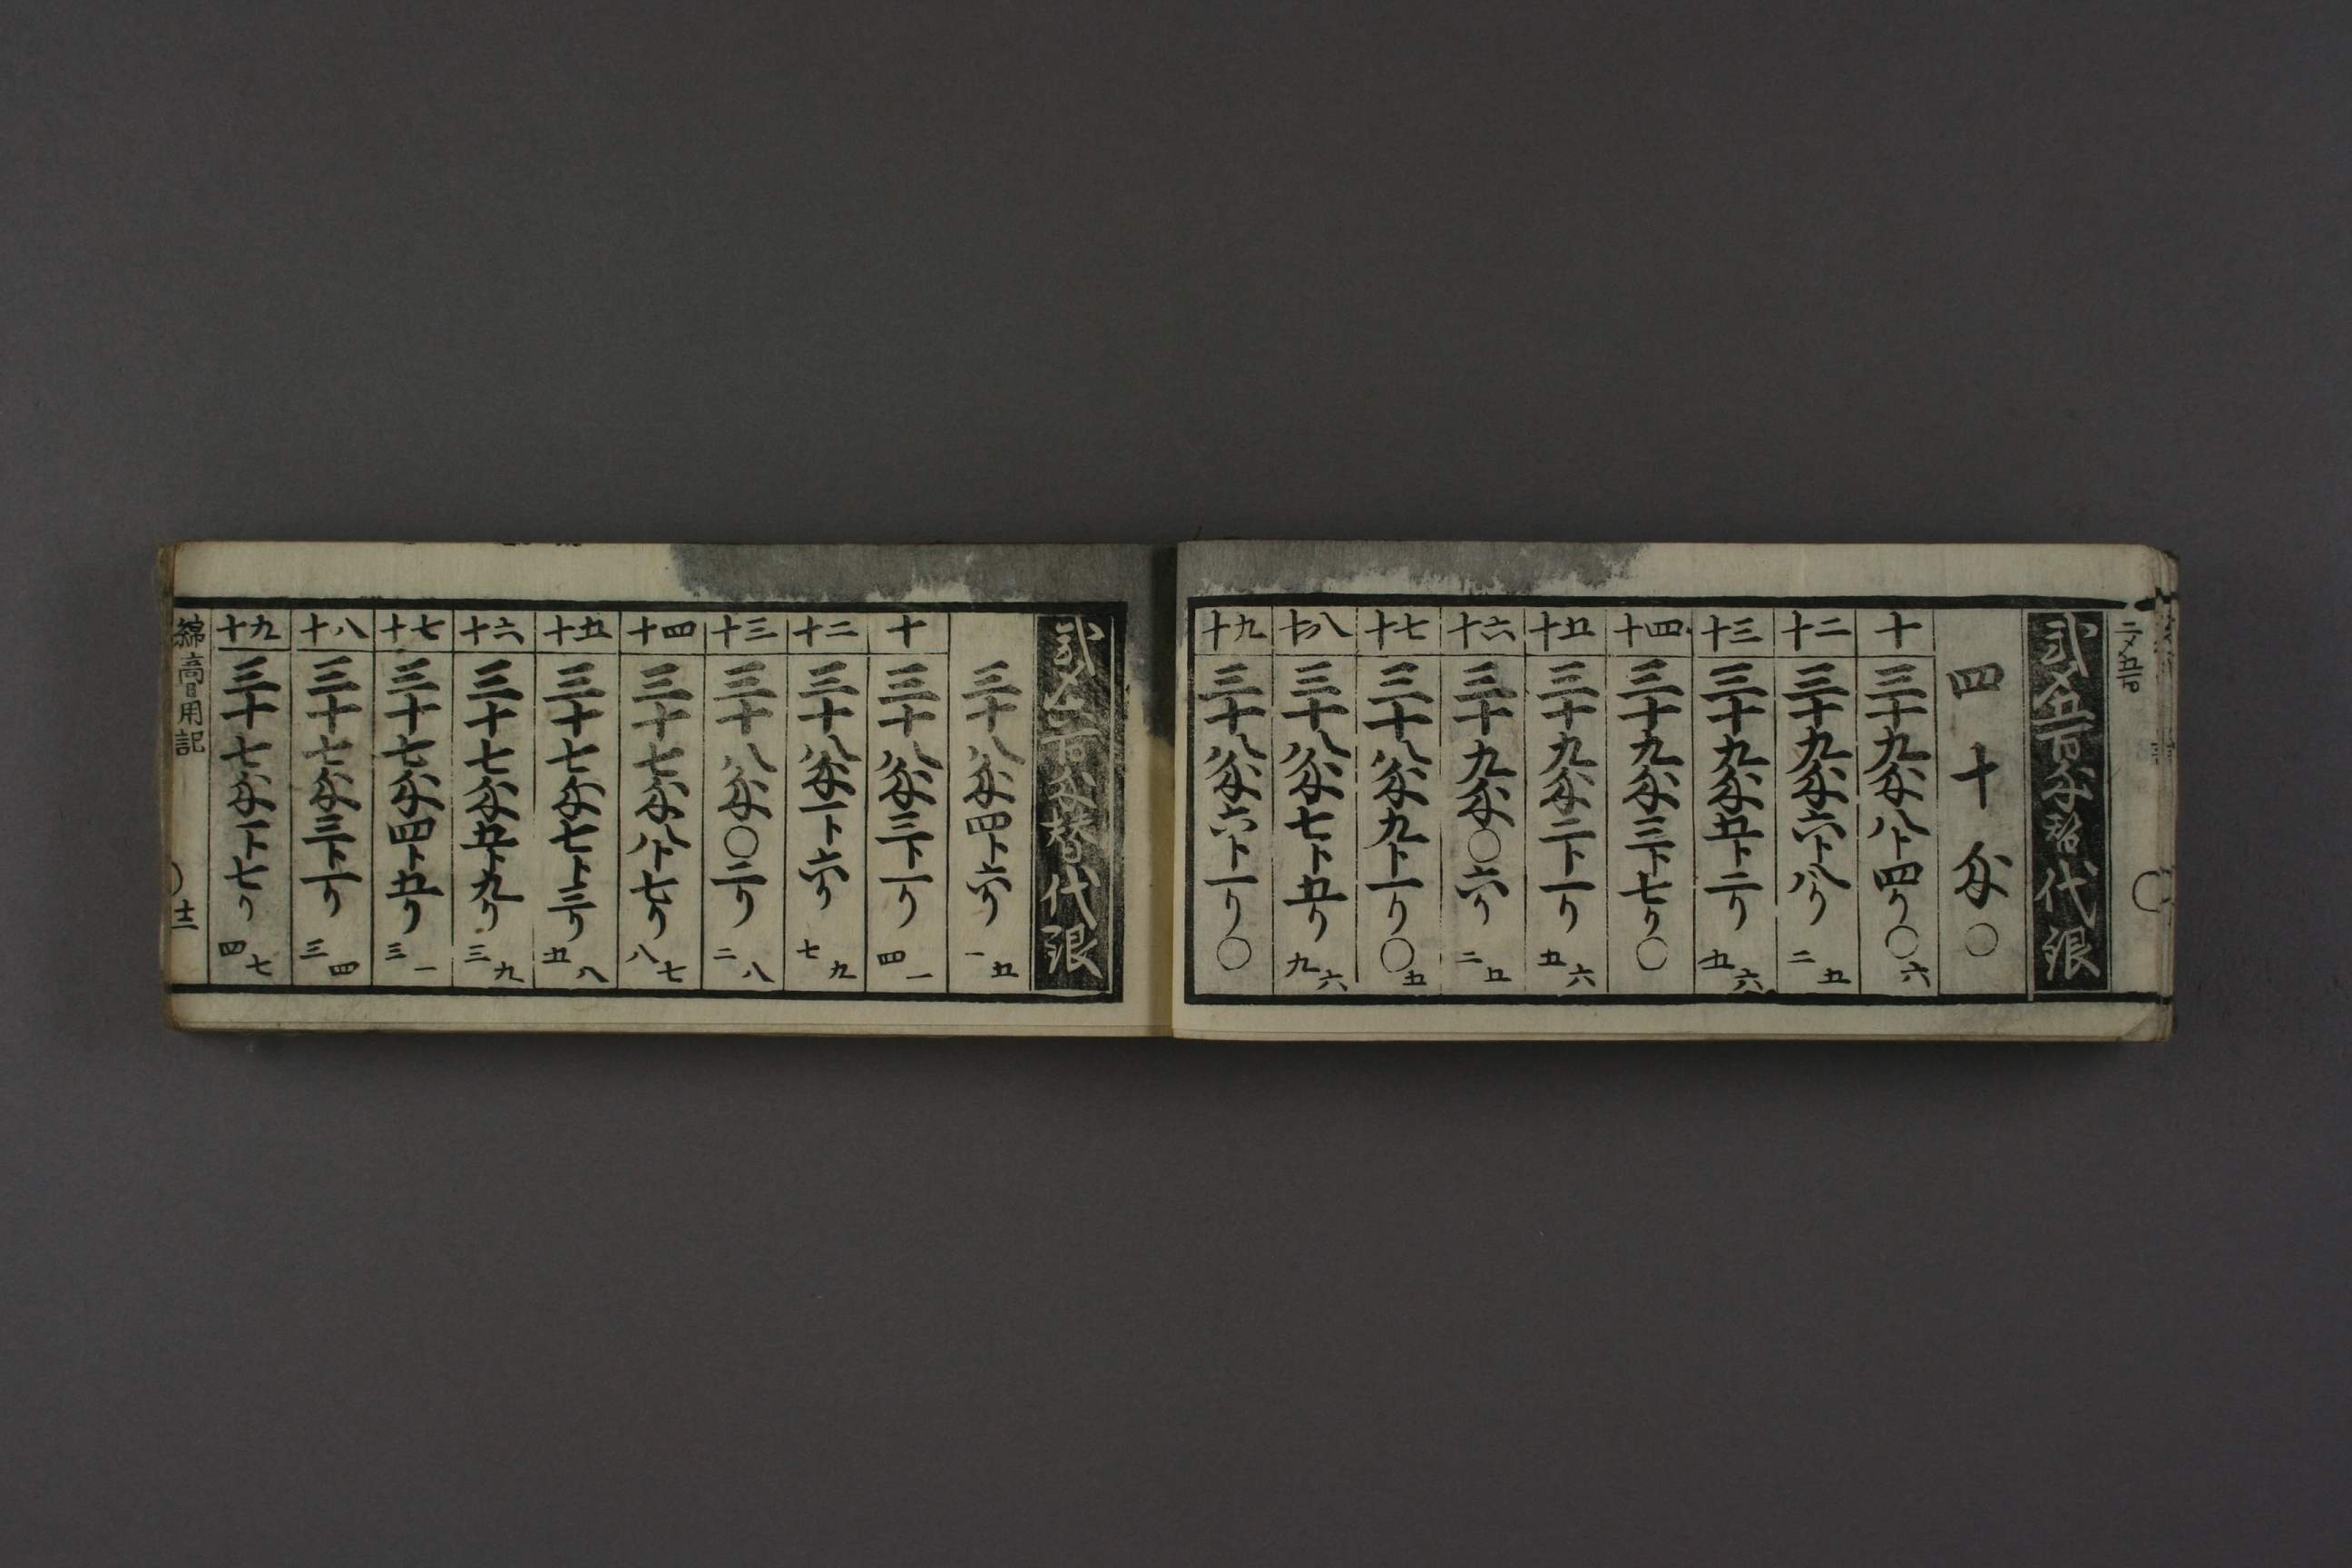 二〆五百
弐〆五百匁替代銀
四十匁〇
十 三十九匁八分四リ〇六
二十 三十九匁六分八リ二五
三十 三十九匁五分二リ五六
四十 三十九匁三分七リ〇
五十 三十九匁二分一リ五六
六十 三十九匁〇六リ二五
七十 三十八匁九分一リ〇五
八十 三十八匁七分五リ九六
九十 三十八匁六分一リ〇
弐〆六百匁替代銀
三十八匁四分六リ一五
十 三十八匁三分一リ四一
二十 三十八匁一分六リ七九
三十 三十八匁〇二リ二八
四十 三十七匁八分七リ八七
五十 三十七匁七分三リ五八
六十 三十七匁五分九リ三九
七十 三十七匁四分五リ三一
八十 三十七匁三分一リ三四
九十 三十七匁一分七リ四七
綿高日用記